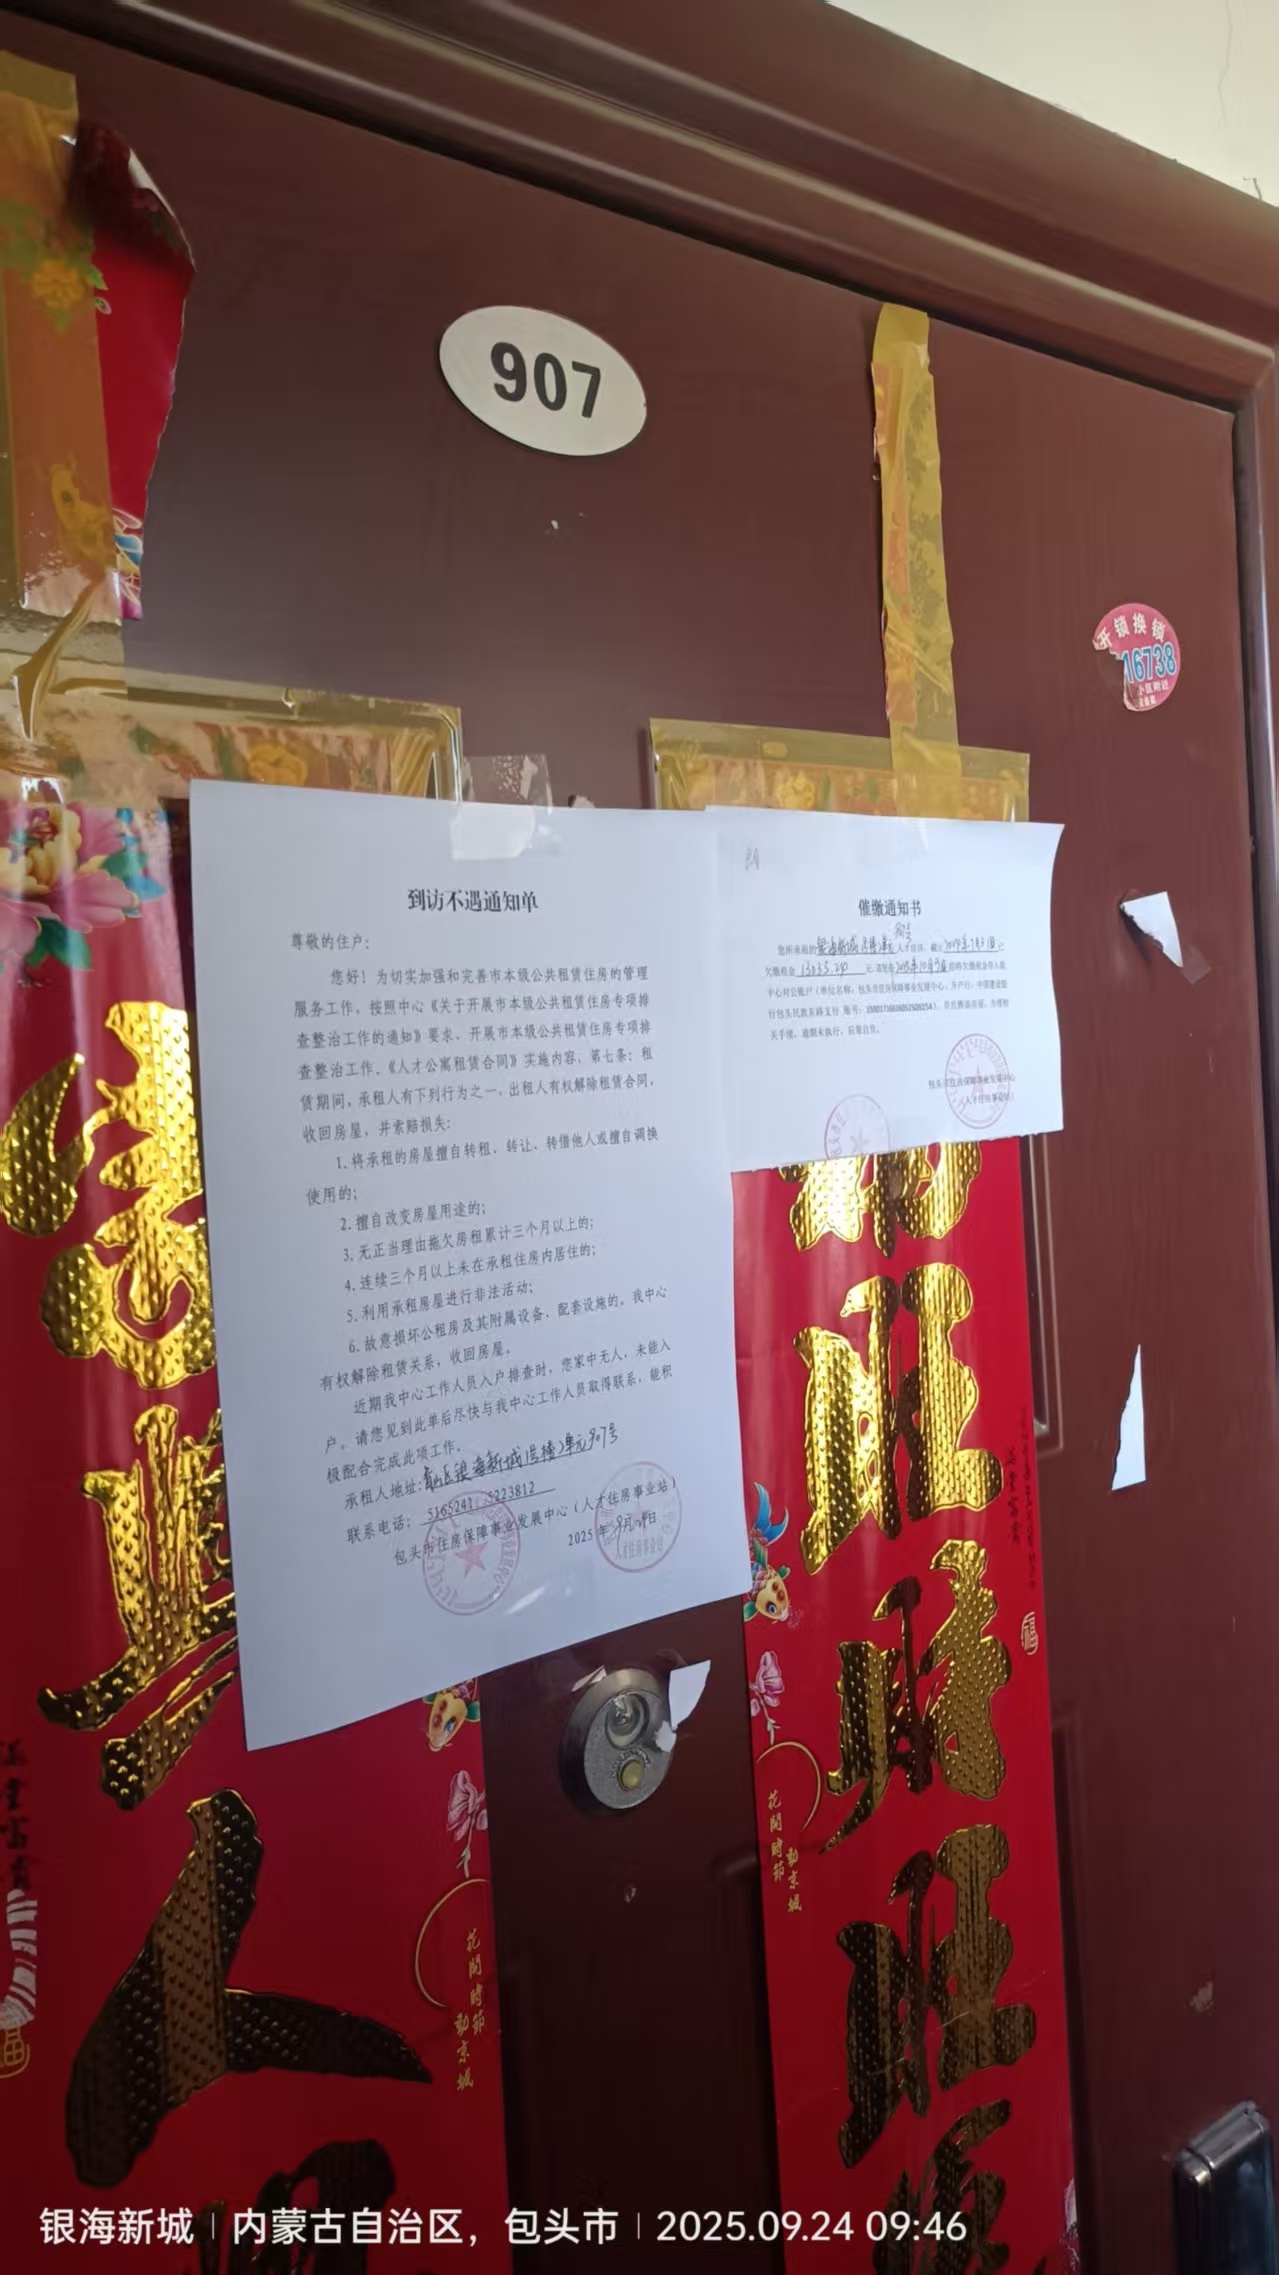 907
开锁换锁
16738
小区附近
到访不遇通知单
尊敬的住户：
您好！为切实加强和完善市本级公共租赁住房的管理
服务工作，按照中心《关于开展市本级公共租赁住房专项排
查整治工作的通知》要求，开展市本级公共租赁住房专项排
查整治工作，《人才公寓租赁合同》实施内容，第七条：租
赁期间，承租人有下列行为之一，出租人有权解除租赁合同，
收回房屋，并索赔损失：
1. 将承租的房屋擅自转租、转让、转借他人或擅自调换
使用的；
2. 擅自改变房屋用途的；
3. 无正当理由拖欠房租累计三个月以上的；
4. 连续三个月以上未在承租住房内居住的；
5. 利用承租房屋进行非法活动；
6. 故意损坏公租房及其附属设备、配套设施的。我中心
有权解除租赁关系，收回房屋。
近期我中心工作人员入户排查时，您家中无人，未能入
户。请您见到此单后尽快与我中心工作人员取得联系，能积
极配合完成此项工作。
承租人地址：银海新城1号楼2单元907号
联系电话：5165241 5223812
包头市住房保障事业发展中心（人才住房事业站）
2025年9月24日
催缴通知书
您所承租的银海新城 人才住房，截止
欠缴租金 13035.20 元，请您在 前将欠缴租金存入我
中心对公账户（单位名称：包头市住房保障事业发展中心，开户行：中国建设银
行包头民族东路支行 账号： ），并且腾退房屋，办理相
关手续。逾期未执行，后果自负。
包头市住房保障事业发展中心
（人才住房事业站）
人
旺
财
旺
福
花開時節
動京城
花開時節
動京城
银海新城 | 内蒙古自治区，包头市 | 2025.09.24 09:46